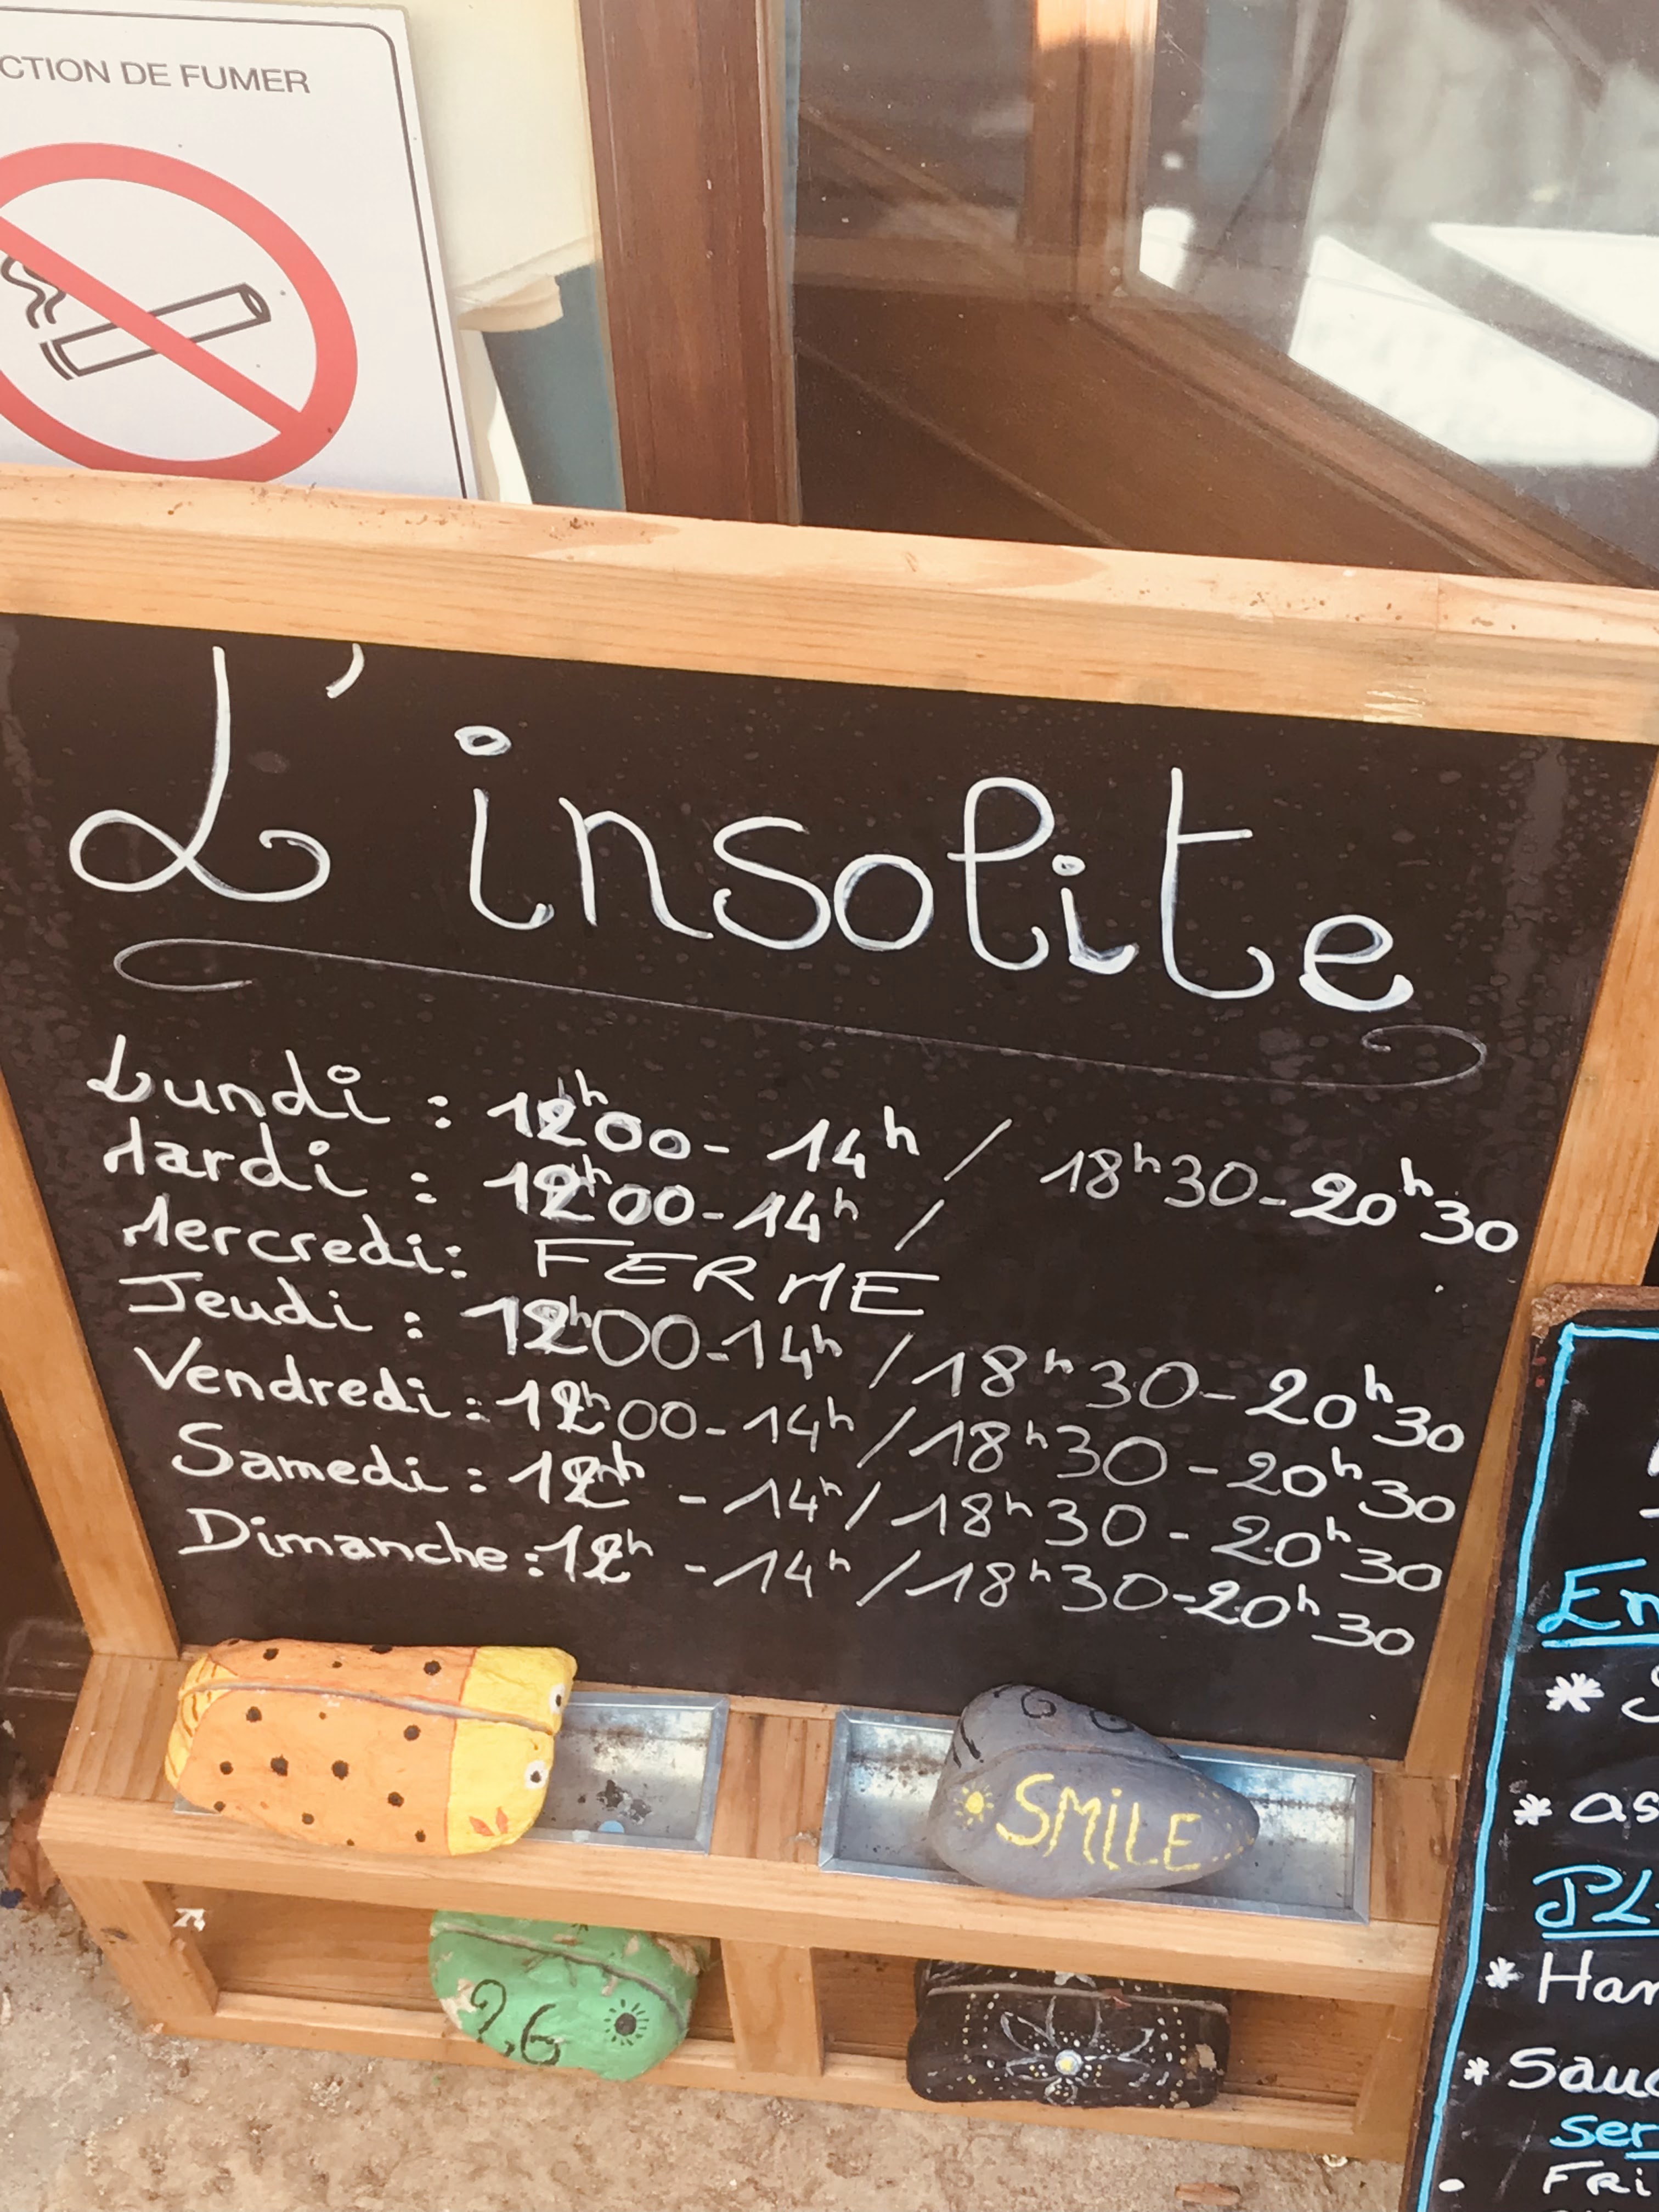 CTION DE FUMER
L'insolite
Lundi : 12h00 - 14h / 18h30 - 20h30
Mardi : 12h00 - 14h /
Mercredi : FERME
Jeudi : 12h00 - 14h / 18h30 - 20h30
Vendredi : 12h00 - 14h / 18h30 - 20h30
Samedi : 12h - 14h / 18h30 - 20h30
Dimanche : 12h - 14h / 18h30 - 20h30
SMILE
26
En
* S
* as
PL
* Har
* Sauc
ser
• FRi